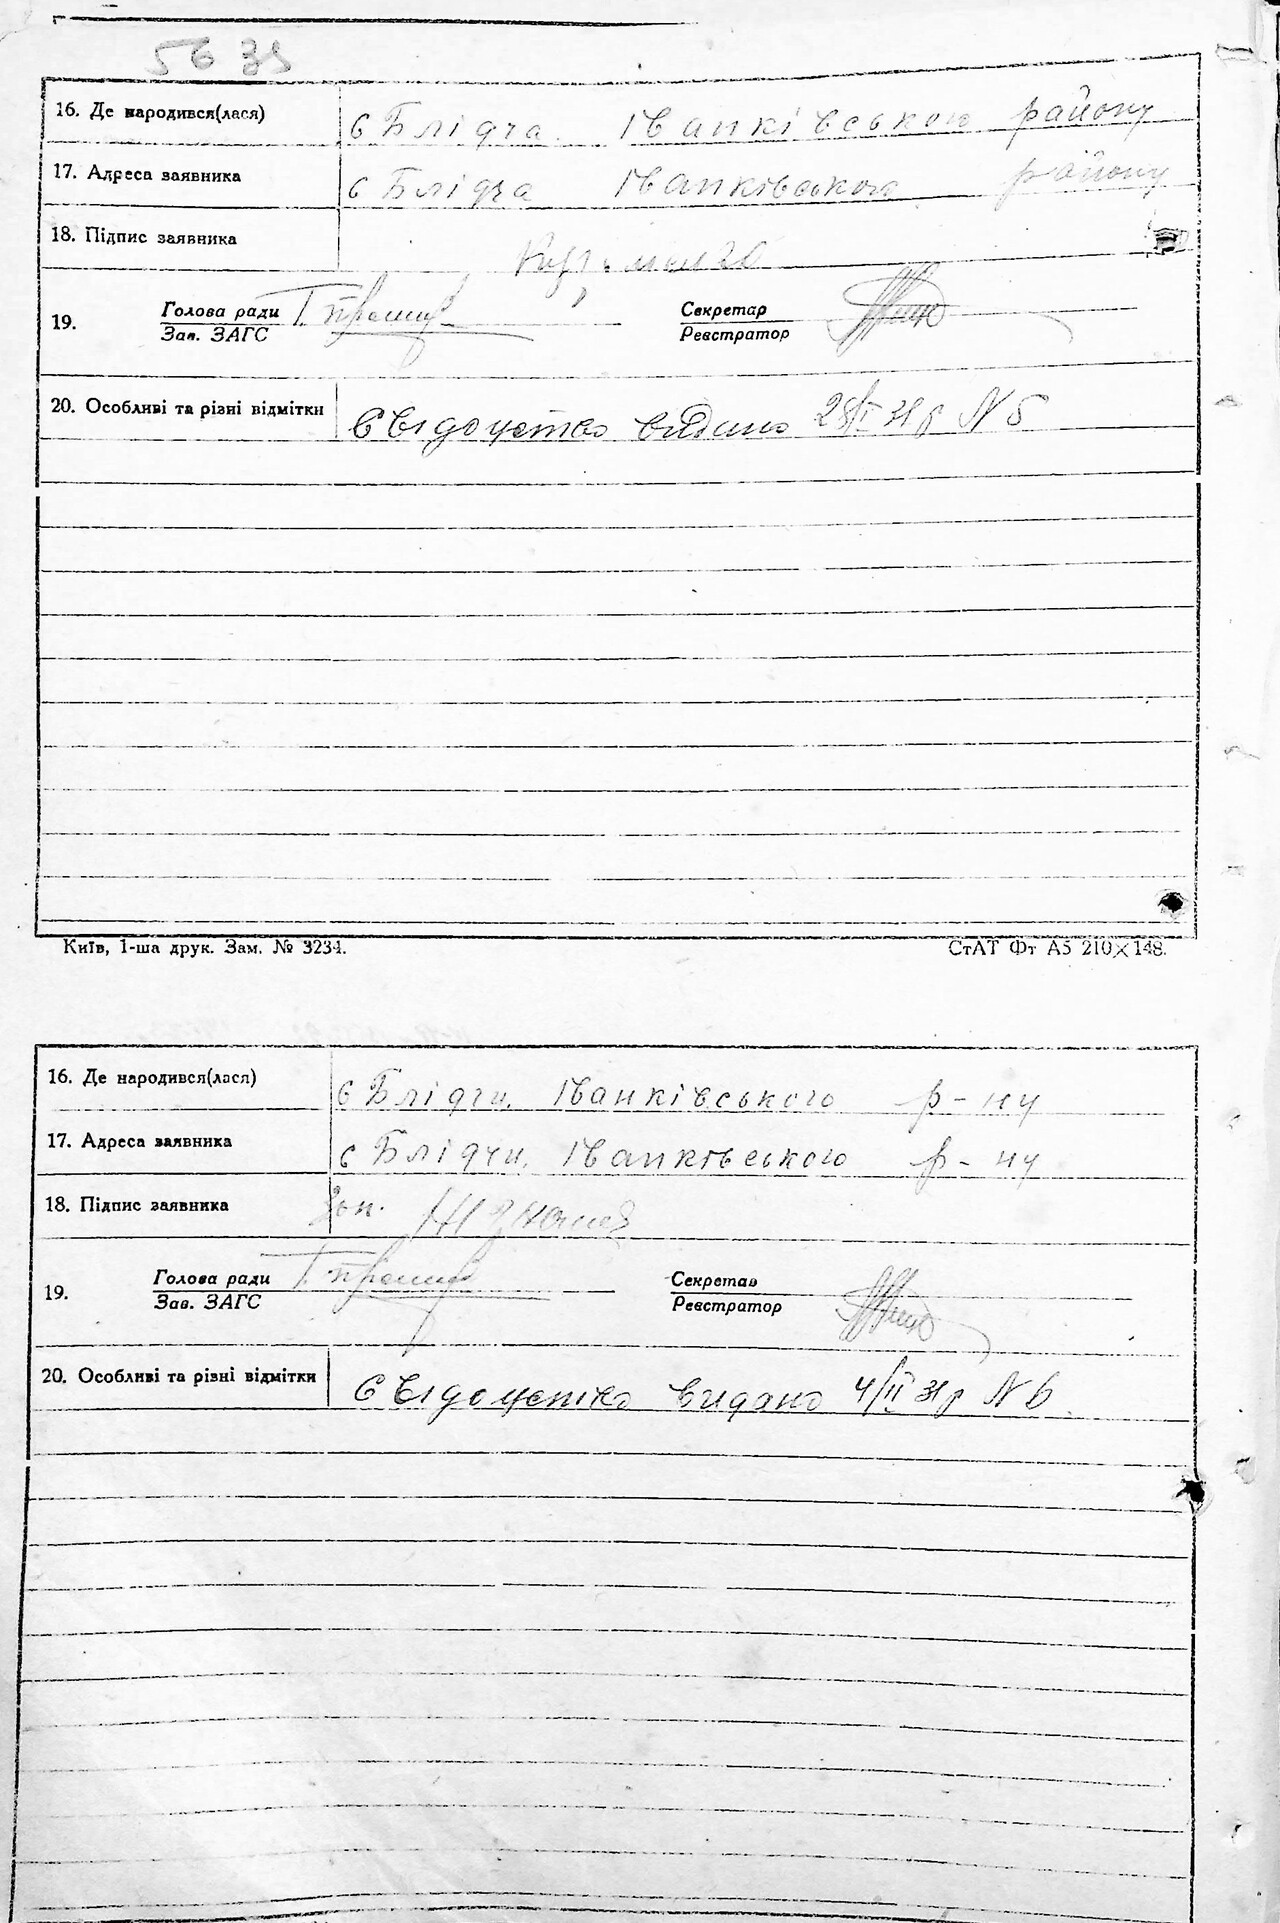 16. Де народився(лася) с Блідча Іванківського району
17. Адреса заявника с Блідча Іванківського району
18. Підпис заявника
19. Голова ради Секретар
Зав. ЗАГС Реєстратор
20. Особливі та різні відмітки Свідоцтво видано N 5
Київ, 1-ша друк. Зам. № 3234. СтАТ Фт А5 210×148.
16. Де народився(лася) с Блідчи Іванківського р-ну
17. Адреса заявника с Блідчи Іванківського р-ну
18. Підпис заявника
19. Голова ради Секретар
Зав. ЗАГС Реєстратор
20. Особливі та різні відмітки Свідоцтво видано 4/II N 6